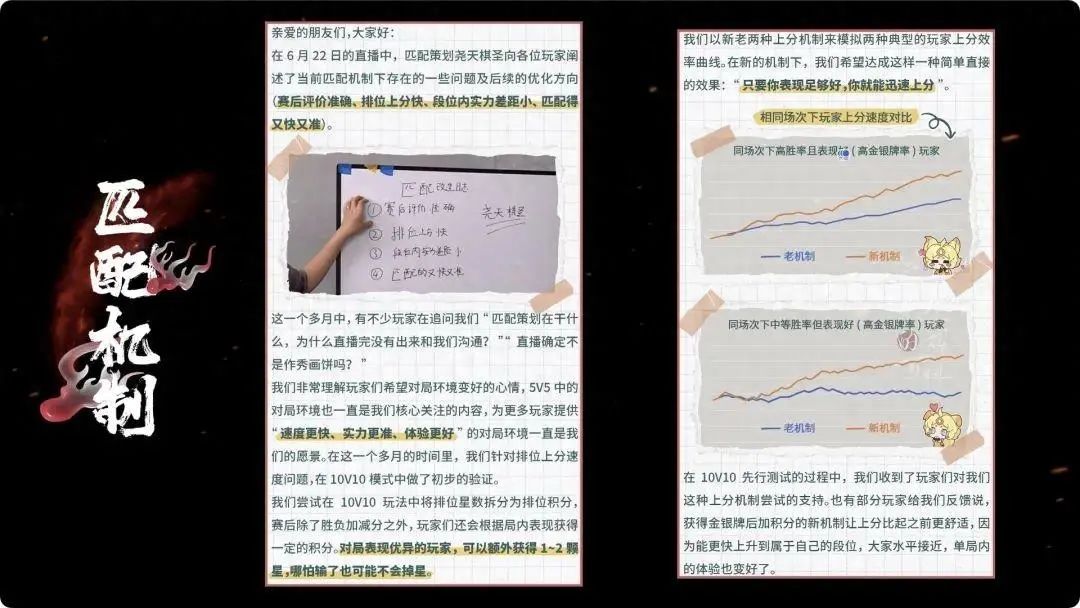 匹配机制
亲爱的朋友们,大家好：
在 6 月 22 日的直播中，匹配策划尧天棋圣向各位玩家阐
述了当前匹配机制下存在的一些问题及后续的优化方向
(赛后评价准确、排位上分快、段位内实力差距小、匹配得
又快又准)。
匹配改进
①赛后评价准确
尧天棋圣
②排位上分快
③段位内实力差距小
④匹配的又快又准
这一个多月中，有不少玩家在追问我们“匹配策划在干什
么，为什么直播完没有出来和我们沟通？”“直播确定不
是作秀画饼吗？”
我们非常理解玩家们希望对局环境变好的心情，5V5 中的
对局环境也一直是我们核心关注的内容，为更多玩家提供
“速度更快、实力更准、体验更好”的对局环境一直是我
们的愿景。在这一个多月的时间里，我们针对排位上分速
度问题，在 10V10 模式中做了初步的验证。
我们尝试在 10V10 玩法中将排位星数拆分为排位积分，
赛后除了胜负加减分之外，玩家们还会根据局内表现获得
一定的积分。对局表现优异的玩家，可以额外获得 1~2 颗
星，哪怕输了也可能不会掉星。
我们以新老两种上分机制来模拟两种典型的玩家上分效
率曲线。在新的机制下，我们希望达成这样一种简单直接
的效果：“只要你表现足够好，你就能迅速上分”。
相同场次下玩家上分速度对比
同场次下高胜率且表现好(高金银牌率)玩家
老机制
新机制
同场次下中等胜率但表现好(高金银牌率)玩家
老机制
新机制
在 10V10 先行测试的过程中，我们收到了玩家们对我们
这种上分机制尝试的支持。也有部分玩家给我们反馈说，
获得金银牌后加积分的新机制让上分比起之前更舒适，因
为能更快上升到属于自己的段位，大家水平接近，单局内
的体验也变好了。